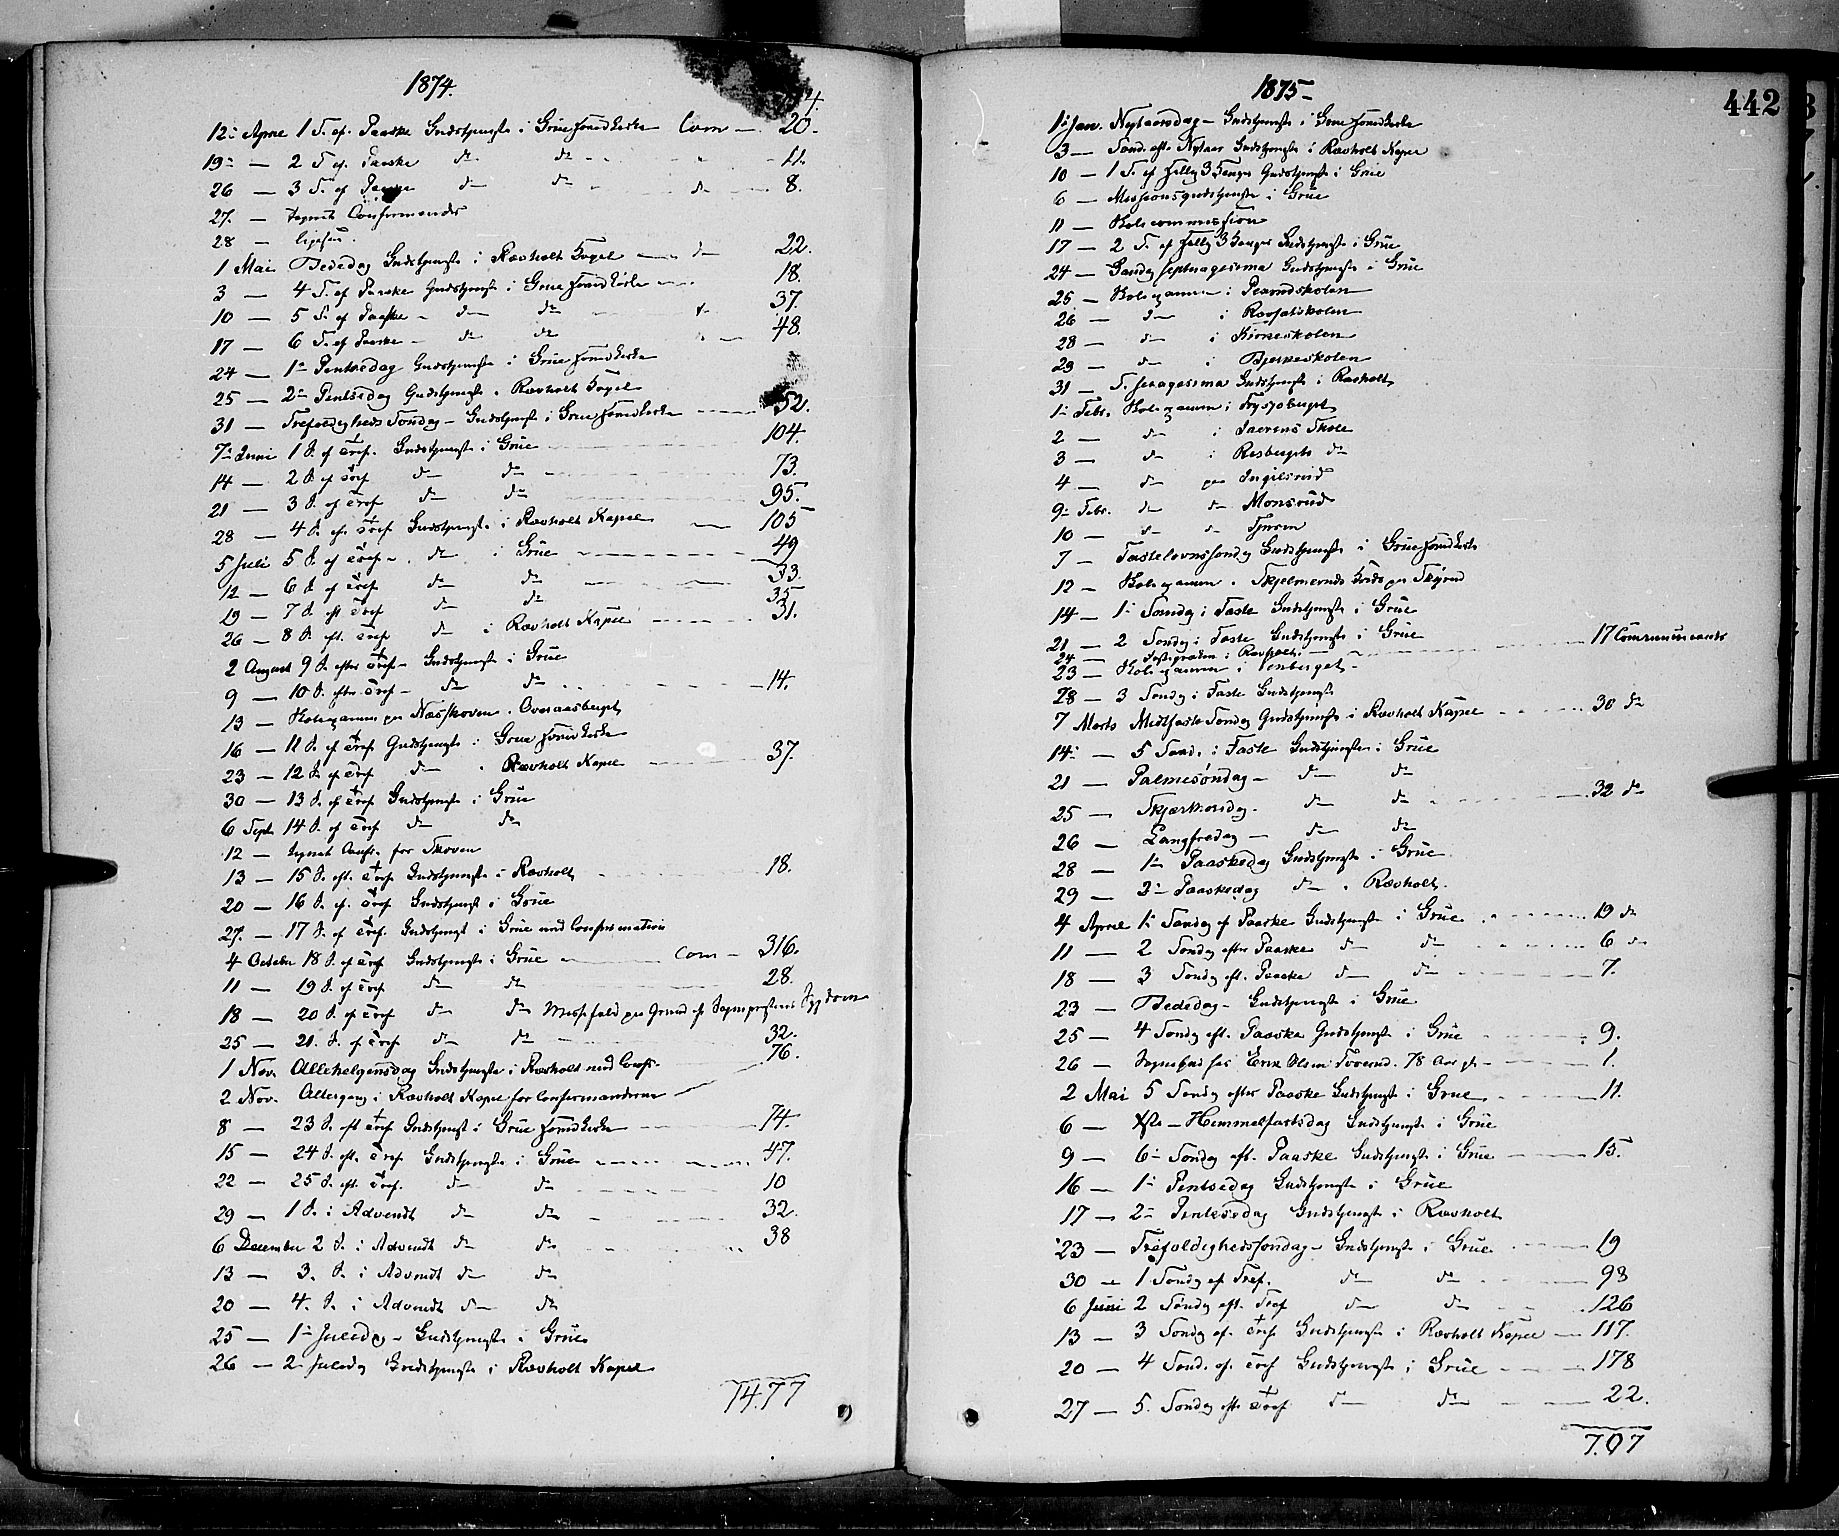 1874.
4.
12 April 1 S. ef. Paaske Gudstjeneste i Grue Hovedkirke Com — 20.
19 — 2 S. ef. Paaske do do 11.
26 — 3 S. ef. Paaske do do do 8.
27. — Confirmander
28 —
1 Mai Bededag Gudstjeneste i Ravholt Kapel do 22.
3 — 4 S. ef. Paaske Gudstjeneste i Grue Hovedkirke 18.
10 — 5 S. ef. Paaske — do do 37.
17 — 6 S. ef. Paaske — do do 48.
24 — 1 Pentsedag Gudstjeneste i Grue Hovedkirke
25 — 2 Pentsedag Gudstjeneste Ravholt Kapel
31 — Trefoldigheds Søndag — Gudstjeneste i Grue Hovedkirke 52.
7 Juni 1 S. ef. Tref. Gudstjeneste i Grue 104.
14 — 2 S. ef. Tref do do 73.
21 — 3 S. ef. Tref do do 95.
28 — 4 S. ef. Tref Gudstjeneste i Ravholt Kapel 105
5 Juli 5 S. ef. Tref — do i Grue 49
12 — 6 S. ef. Tref do do 33.
19 — 7 S. eft. Tref do do 35
26 — 8 S. eft. Tref do i Ravholt Kapel 31.
2 August 9 S. efter Tref — Gudstjeneste i Grue
9 — 10 S. efter Tref — do do 14.
13 — paa Næsskoven Overaasberget
16 — 11 S. ef. Tref. Gudstjeneste i Grue Hovedkirke
23 — 12 S. ef. Tref do Ravholt Kapel 37.
30 — 13 S. ef. Tref. Gudstjeneste i Grue
6 Sept. 14 S. ef. Tref do do
12 — Conf. for Skoven
13 — 15 S. eft. Tref Gudstjeneste i Ravholt 18.
20 — 16 S. ef. Tref Gudstjeneste i Grue
27. — 17 S. ef. Tref. Gudstjeneste i Grue med Confirmation
4 October 18 S. ef. Tref Gudstjeneste i Grue Com — 316.
11 — 19 S. ef. Tref do do 28.
18 — 20 S. ef. Tref do do Messefald paa Grund af Sognepræstens Sygdom
25 — 21. S. ef. Tref do do 32.
1 Nov. Allehelgensdag Gudstjeneste i Ravholt med Conf. 76.
2 Nov. Altergang i Ravholt Kapel for Confirmanderne
8 — 23 S. eft Tref Gudstjeneste i Grue Hovedkirke 74.
15 — 24 S. eft. Tref Gudstjeneste i Grue 47.
22 — 25 S. eft. Tref. do do 10
29 — 1 S. i Advendt do do 32.
6 December 2 S. i Advendt do do 38
13 — 3. S. i Advendt do do
20 — 4. S. i Advendt do do
25 — 1 Juledag — Gudstjeneste i Grue
26 — 2 Juledag Gudstjeneste i Ravholt Kapel
1477
1875
442
1 Jan. Nytaarsdag — Gudstjeneste i Grue Hovedkirke
3 — Sønd. efter Nytaar Gudstjeneste i Ravholt Kapel
10 — 1 S. ef. Hellig 3 Konger Gudstjeneste i Grue
6 — Missionsgudstjeneste i Grue
11 — Skolecommission
17 — 2 S. ef. Hellig 3 Konger Gudstjeneste i Grue
24 — Søndag Septuagesima Gudstjeneste i Grue
25 — Skoleexamen i
26 — do i
28 — do i Kirkeskolen
29 — do i Bjerkeskolen
31 — S. Sexagesima Gudstjeneste i Ravholt
1 Febr. Skoleexamen i Frysjøberget
2 — do i Skole
3 — do i Risberget do
4 — do paa Ingelsrud
9 Febr. do do Monsrud
10 — do do
7 — Fastelavnssøndag Gudstjeneste i Grue Hovedkirke
12 — Skoleexamen
14 — 1 Søndag i Faste Gudstjeneste i Grue
21 — 2 Søndag i Faste Gudstjeneste i Grue 17 Communicanter
24 — i Ravholt
23 — Skoleexamen i
28 — 3 Søndag i Faste Gudstjeneste
7 Marts Midfaste Søndag Gudstjeneste i Ravholt Kapel 30 do
14 — 5 Sønd. i Faste Gudstjeneste i Grue
21 — Palmesøndag — do do
25 — Skjærtorsdag. do do 32 do
26 — Langfredag — do do
28 — 1 Paaskedag Gudstjeneste i Grue
29 — 2 Paaskedag do Ravholt.
4 April 1 Søndag ef. Paaske Gudstjeneste i Grue 19 do
11 — 2 Søndag efter Paaske do do 6 do
18 — 3 Søndag eft. Paaske do do 7.
23 — Bededag — Gudstjeneste i Grue
25 — 4 Søndag eft. Paaske Gudstjeneste i Grue 9.
26 — Sognebud hos Erik Olsen 78 Aar gl. 1.
2 Mai 5 Søndag efter Paaske Gudstjeneste i Grue 11.
6 — Xsti — Himmelfartsdag Gudstjeneste i Grue
9 — 6 Søndag eft. Paaske Gudstjeneste i Grue 15.
16 — 1 Pentsedag Gudstjeneste i Grue
17 — 2 Pentsedag Gudstjeneste i Ravholt
23 — Trefoldighedssøndag — Gudstjeneste i Grue 19
30 — 1 Søndag ef Tref. do do 93
6 Juni 2 Søndag eft. Tref do do 126
13 — 3 Søndag ef. Tref Gudstjeneste i Ravholt Kapel 117.
20 — 4 Sønd. ef. Tref Gudstjeneste i Grue 178
27 — 5. Søndag efter Tref do do 22.
707